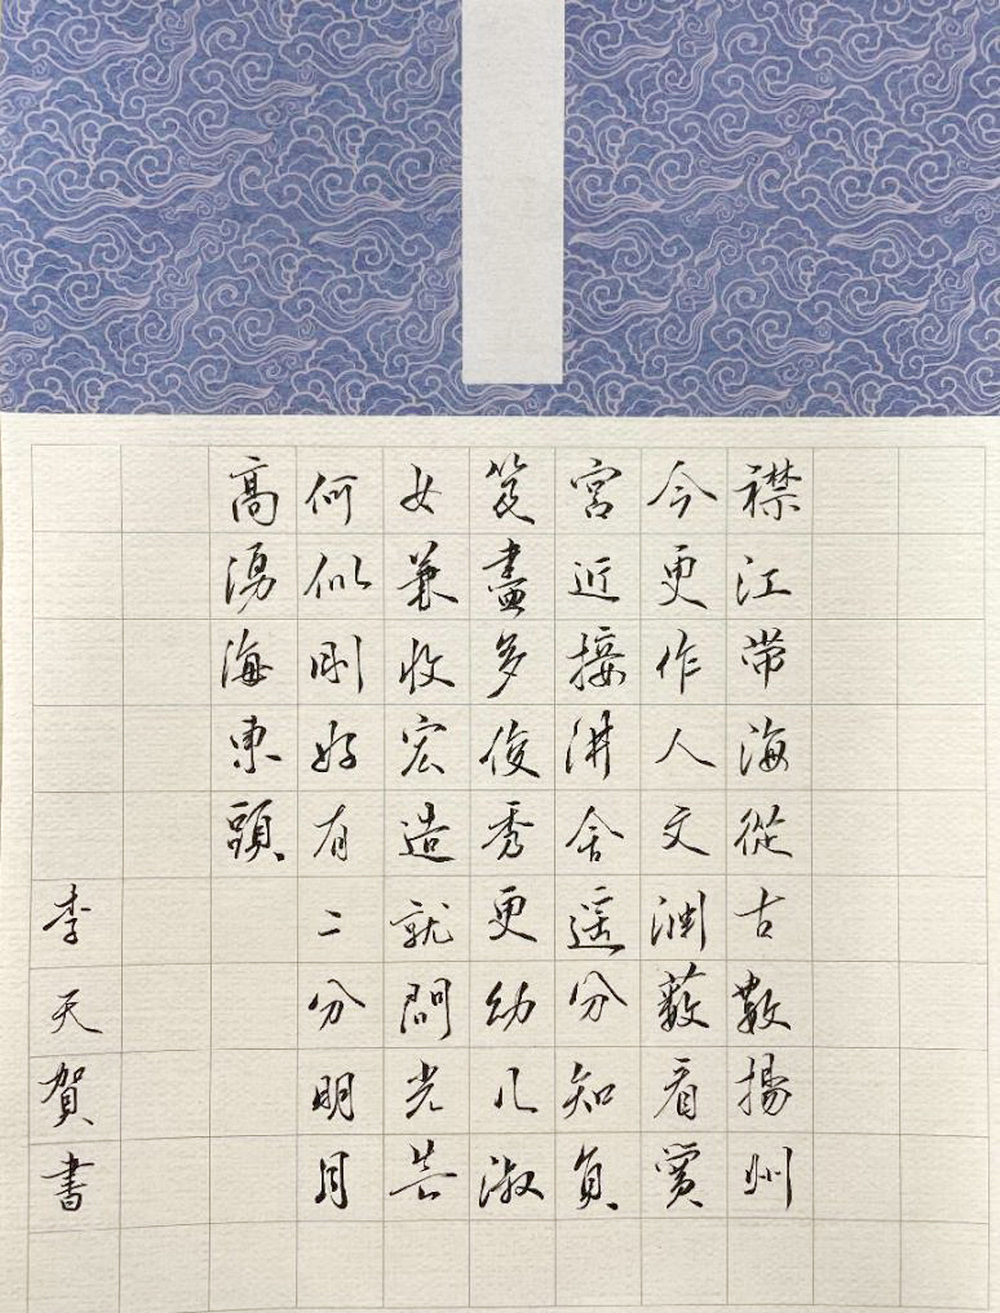 襟江带海從古數揚州
今更作人文淵藪看黌
宮近接讲舍遥分知負
笈盡多俊秀更幼儿淑
女兼收宏造就問光芒
何似剛好有二分明月
高湧海東頭
李天賀書